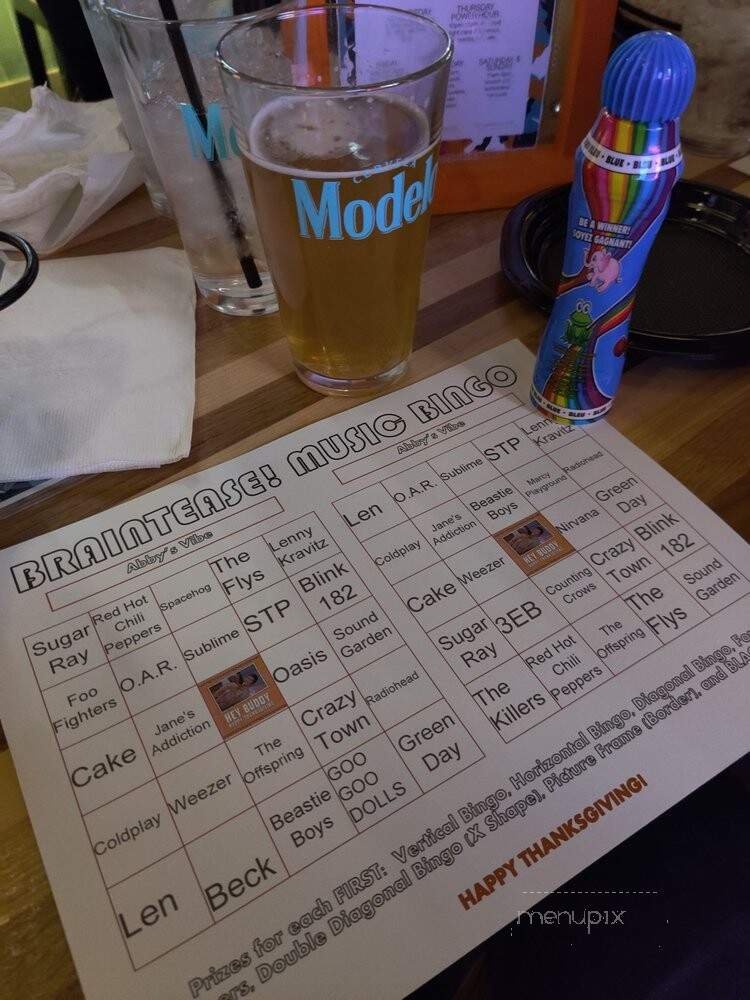 THURSDAY
POWERHOUR
SATURDAY &
SUNDAY
CERVEZA
Modelo
Mo
BLEU • BLUE • BLEU
BE A WINNER!
SOYEZ GAGNANT!
BLUE • BLEU • BLUE • BLEU
BRAINTEASE! MUSIC BINGO
Abby's Vibe
Sugar Ray
Red Hot Chili Peppers
Spacehog
The Flys
Lenny Kravitz
Foo Fighters
O.A.R.
Sublime
STP
Blink 182
Cake
Jane's Addiction
HEY BUDDY
Oasis
Sound Garden
Coldplay
Weezer
The Offspring
Crazy Town
Radiohead
Len
Beck
Beastie Boys
GOO GOO DOLLS
Green Day
Abby's Vibe
Len
O.A.R.
Sublime
STP
Lenny Kravitz
Coldplay
Jane's Addiction
Beastie Boys
Marcy Playground
Radiohead
Cake
Weezer
HEY BUDDY
Nirvana
Green Day
Sugar Ray
3EB
Counting Crows
Crazy Town
Blink 182
The Killers
Red Hot Chili Peppers
The Offspring
The Flys
Sound Garden
Prizes for each FIRST: Vertical Bingo, Horizontal Bingo, Diagonal Bingo, Fo
ers, Double Diagonal Bingo (X Shape), Picture Frame (Border), and BLA
HAPPY THANKSGIVING!
menupix